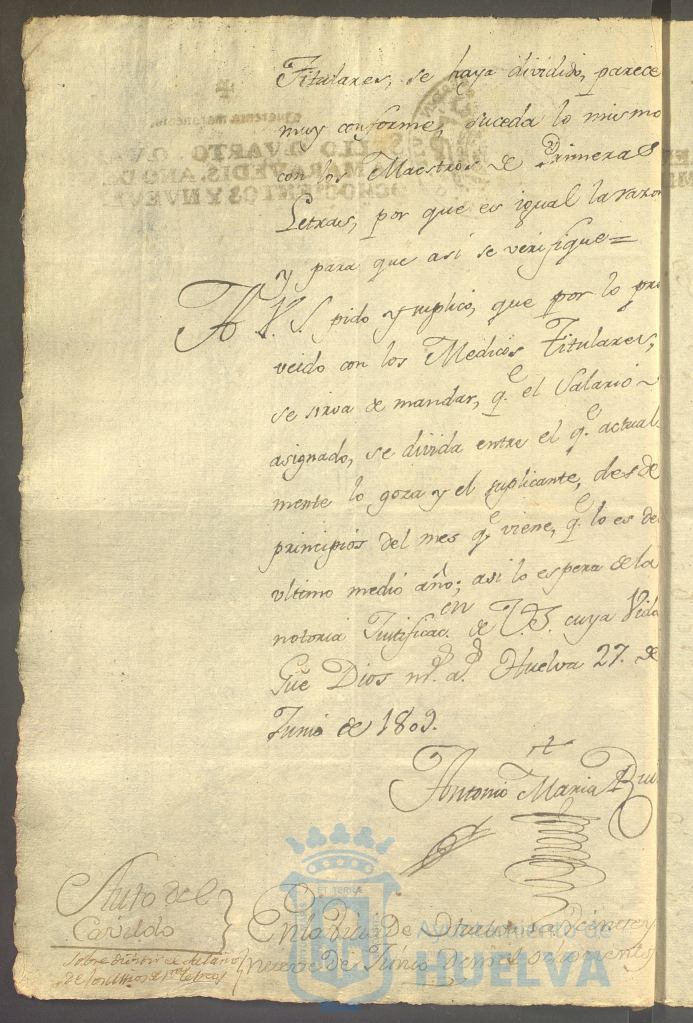 Titulares, se haya dividido, parece
muy conforme, suceda lo mismo
con los Maestros de Primeras
Letras, por que es igual la razon
y para que asi se verifique=
A V. S. pido y suplico, que por lo pro
veido con los Medicos Titulares,
se sirva de mandar, q.e el Salario
asignado, se divida entre el q.e actual
mente lo goza y el suplicante, desde
principios del mes q.e viene, q.e lo es del
ultimo medio año; asi lo espera de la
notoria Justificac.on de V.S. cuya Vida
Gûe Dios m.s a.s Huelva 27. de
Junio de 1809.
Antonio Maria Rui
Auto del
Cavildo
sobre
de los de pras letras
En la Villa de Huelva en veinte y
nueve de Junio de mil ochocientos
ET TERRÆ
Ayuntamiento de
HUELVA
SELLO QVARTO. QVA
MARAVEDIS, AÑO DE
OCHOCIENTOS Y NUEVE